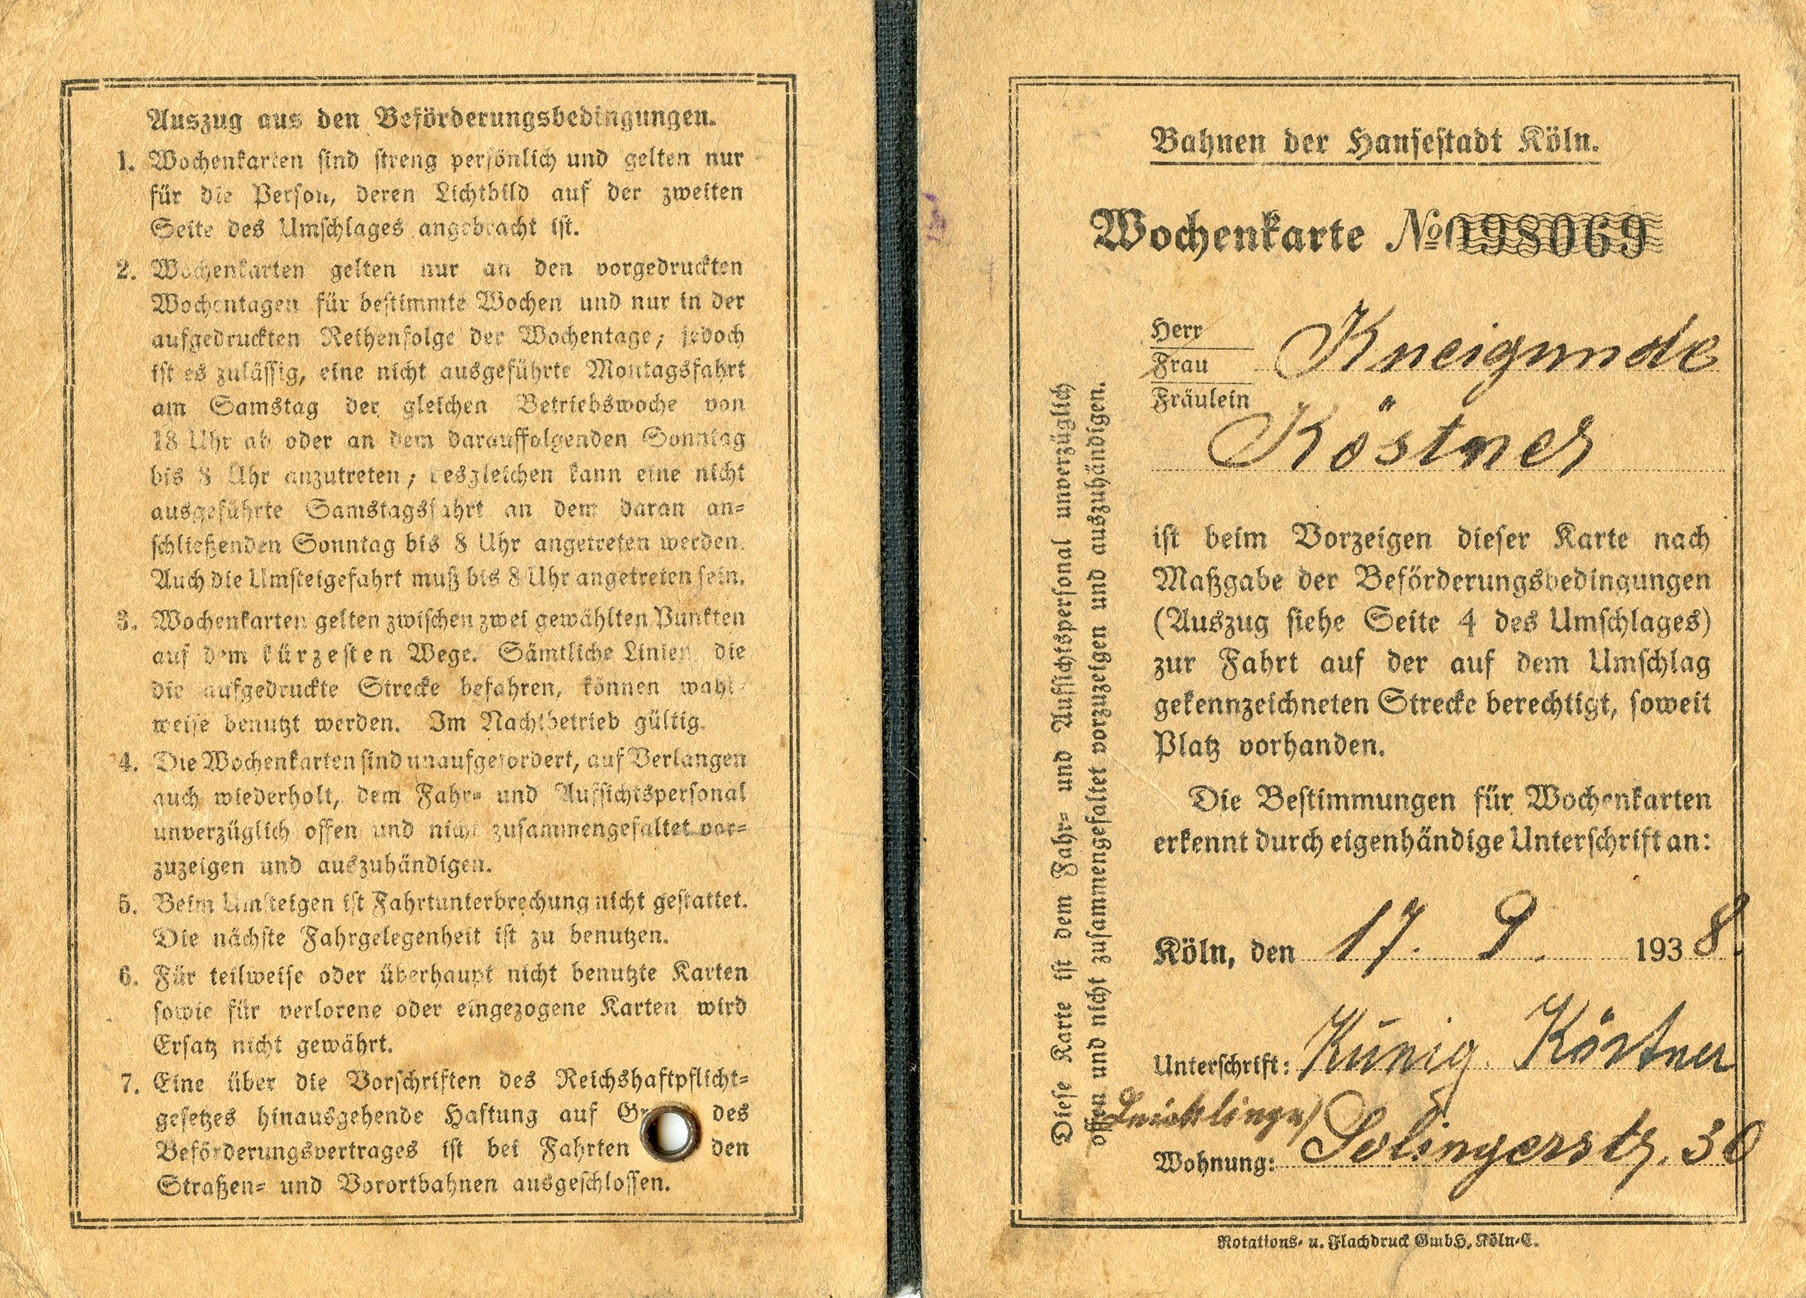 Auszug aus den Beförderungsbedingungen.
1. Wochenkarten sind streng persönlich und gelten nur
für die Person, deren Lichtbild auf der zweiten
Seite des Umschlages angebracht ist.
2. Wochenkarten gelten nur an den vorgedruckten
Wochentagen für bestimmte Wochen und nur in der
aufgedruckten Reihenfolge der Wochentage; jedoch
ist es zulässig, eine nicht ausgeführte Montagsfahrt
am Samstag der gleichen Betriebswoche von
18 Uhr ab oder an dem darauffolgenden Sonntag
bis 8 Uhr anzutreten; desgleichen kann eine nicht
ausgeführte Samstagsfahrt an dem daran an=
schließenden Sonntag bis 8 Uhr angetreten werden.
Auch die Umsteigefahrt muß bis 8 Uhr angetreten sein.
3. Wochenkarten gelten zwischen zwei gewählten Punkten
auf dem kürzesten Wege. Sämtliche Linien, die
die aufgedruckte Strecke befahren, können wahl=
weise benutzt werden. Im Nachtbetrieb gültig.
4. Die Wochenkarten sind unaufgefordert, auf Verlangen
auch wiederholt, dem Fahr= und Aufsichtspersonal
unverzüglich offen und nicht zusammengefaltet vor=
zuzeigen und auszuhändigen.
5. Beim Umsteigen ist Fahrtunterbrechung nicht gestattet.
Die nächste Fahrgelegenheit ist zu benutzen.
6. Für teilweise oder überhaupt nicht benutzte Karten
sowie für verlorene oder eingezogene Karten wird
Ersatz nicht gewährt.
7. Eine über die Vorschriften des Reichshaftpflicht=
gesetzes hinausgehende Haftung auf Gr des
Beförderungsvertrages ist bei Fahrten den
Straßen= und Vorortbahnen ausgeschlossen.
Diese Karte ist dem Fahr= und Aufsichtspersonal unverzüglich
offen und nicht zusammengefaltet vorzuzeigen und auszuhändigen.
Bahnen der Hansestadt Köln.
Wochenkarte № 098069
Herr
Frau Kneigunde
Fräulein
Köstner
ist beim Vorzeigen dieser Karte nach
Maßgabe der Beförderungsbedingungen
(Auszug siehe Seite 4 des Umschlages)
zur Fahrt auf der auf dem Umschlag
gekennzeichneten Strecke berechtigt, soweit
Platz vorhanden.
Die Bestimmungen für Wochenkarten
erkennt durch eigenhändige Unterschrift an:
Köln, den 17. 9. 1938.
Unterschrift: Künig. Köstner
Wohnung: Solingerstr. 30
Rotations= u. Flachdruck GmbH, Köln=E.